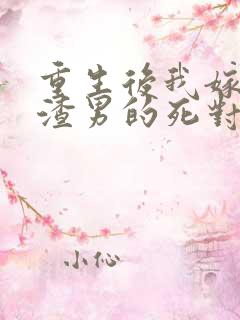 重生後我嫁
渣男的死對
小伈